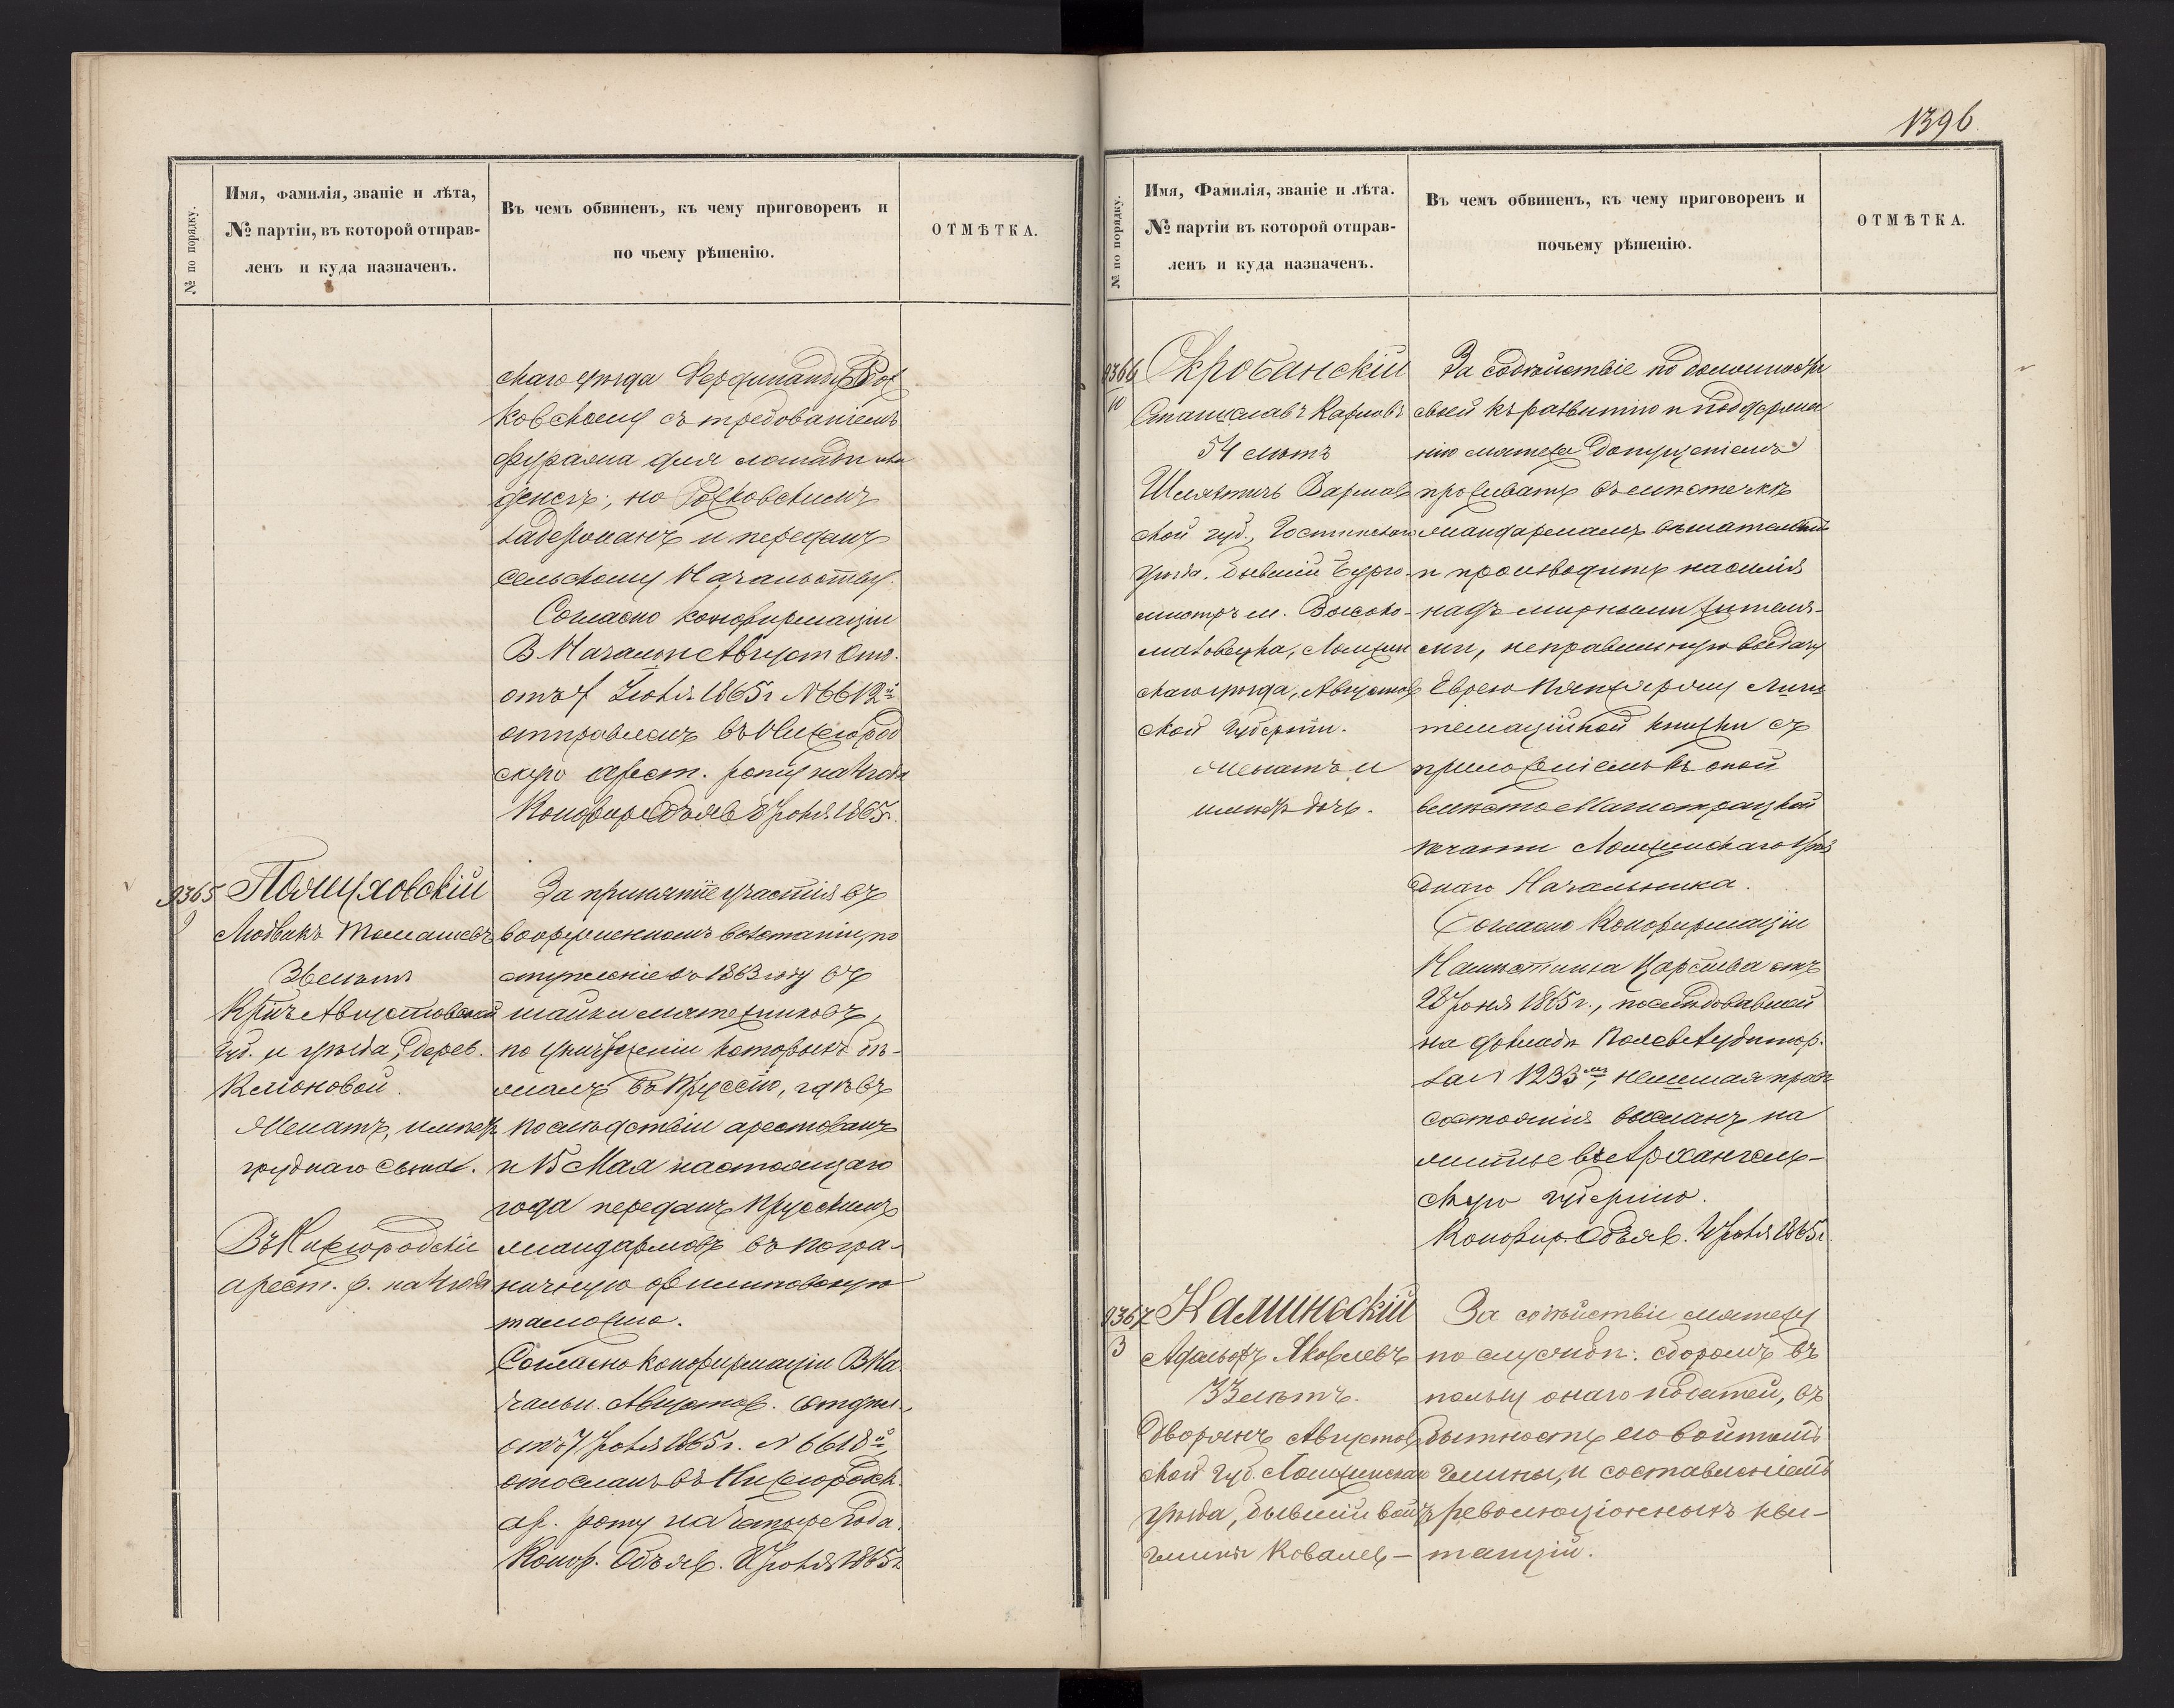 1396
№ по порядку.
Имя, фамилія, званіе и лѣта,
№ партіи, въ которой отправ-
ленъ и куда назначенъ.
Въ чемъ обвиненъ, къ чему приговоренъ и
по чьему рѣшенію.
ОТМѢТКА.
скаго уѣзда Фердинанду Рох
ковскому съ требованіемъ
фуража для лошади или
денегъ; но Рожковскимъ
задержанъ и переданъ
сельскому Начальству.
Согласно конфирмаціи
В. Начальн. Август. Отд.
отъ 7 Іюля 1865 г. № 6612й
отправленъ въ Нижегород
скую арест. роту на 4 года
Конфир. Объяв. 8 Іюля 1865 г.
9365
9
Полцуховскій
Людвикъ Томашевъ
лѣтъ
Кр-нъ Августовской
губ. и уѣзда, дерев.
Клюновой.
Женатъ, имѣетъ
груднаго сына.
Въ Нижегородскія
арест. р. на 4 года
За принятіе участія въ
вооруженномъ возстаніи, по
ступленіе въ 1863 году въ
шайки мятежниковъ,
по уничтоженіи которыхъ бѣ-
жалъ въ Пруссію, гдѣ въ
послѣдствіи арестованъ
и 15 Мая настоящаго
года переданъ Прусскимъ
жандармовъ въ погра-
ничную филиповскую
таможню.
Согласно конфирмаціи В. На
чальн. Августов. Отдѣл.,
отъ 7 Іюля 1865 г. № 6618й,
отосланъ въ Нижегородск.
ар. роту на четыре года.
Конф. Объяв. Іюля 1865 г.
№ по порядку.
Имя, Фамилія, званіе и лѣта.
№ партіи въ которой отправ-
ленъ и куда назначенъ.
Въ чемъ обвиненъ, къ чему приговоренъ и
почьему рѣшенію.
ОТМѢТКА.
9366
10
Скробанскій
Станиславъ Карловъ
54 лѣтъ
Шляхтичъ Варшав
ской губ., Гостинскаго
уѣзда. Бывшій Бурго-
мистръ м. Высоко-
мазовецка, Ломжин
скаго уѣзда, Августов
ской Губерніи.
Женатъ и
имѣетъ дочь.
За содѣйствіе по должности
своей къ развитію и поддержа
нію мятежа допущеніемъ
проживать въ мѣстечкѣ
жандармамъ вѣшателямъ
и производить насилія
надъ мирными жителя-
ми, неправильную выдачу
Еврею Легити
маціонной книжки съ
приложеніемъ къ оной
вмѣсто Магистратской
печати Ломжинскаго Уѣз
днаго Начальника.
Согласно Конфирмаціи
Намѣстника Царства отъ
28 Іюня 1865 г., послѣдовавшей
на докладѣ Полев. Аудитор.
за № 1233мъ, нелишая правъ
состоянія высланъ на
житье въ Архангель-
скую губернію.
Конфир. Объяв. Іюля 1865 г.
9367
3
Калиновскій
Адольфъ Яковлевъ
33 лѣтъ.
Дворянъ Августов
ской Губ. Ломжинскаго
уѣзда, бывшій войтъ
гмины Ковалев-
За содѣйствіе мятежу
по службѣ: сборомъ въ
пользу онаго податей, въ
бытность его войтомъ
гмины, и составленіемъ
революціонныхъ кви-
танцій.